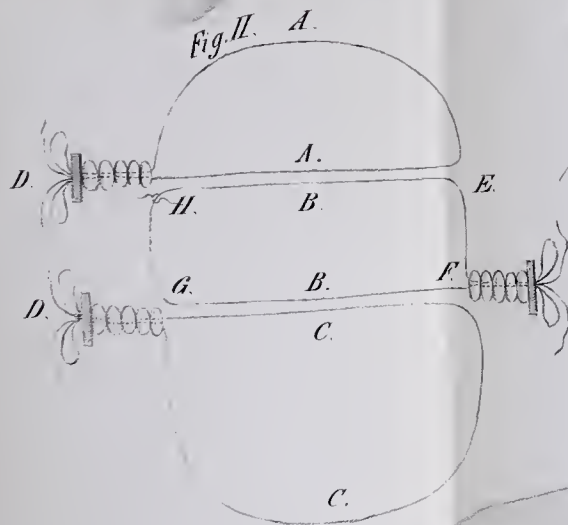 Fig. II. A.
D. A. E.
H. B.
G. B. F.
D. C.
C.